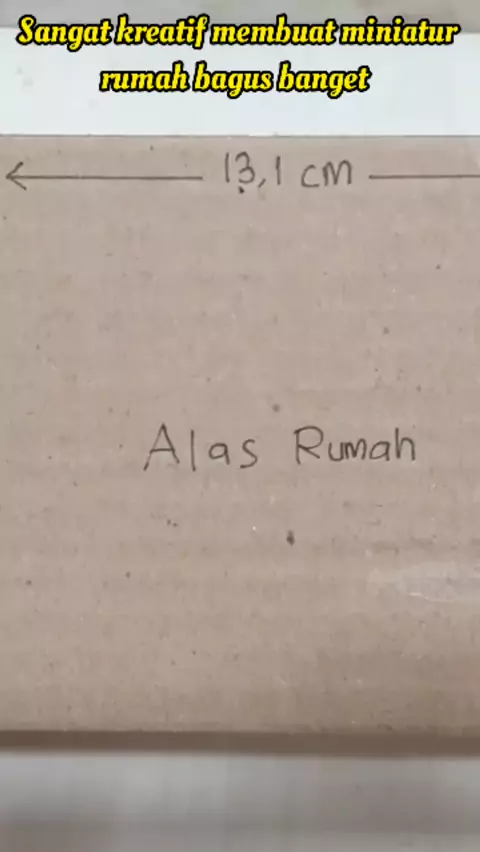 Sangat kreatif membuat miniatur
rumah bagus banget
13,1 cm
Alas Rumah